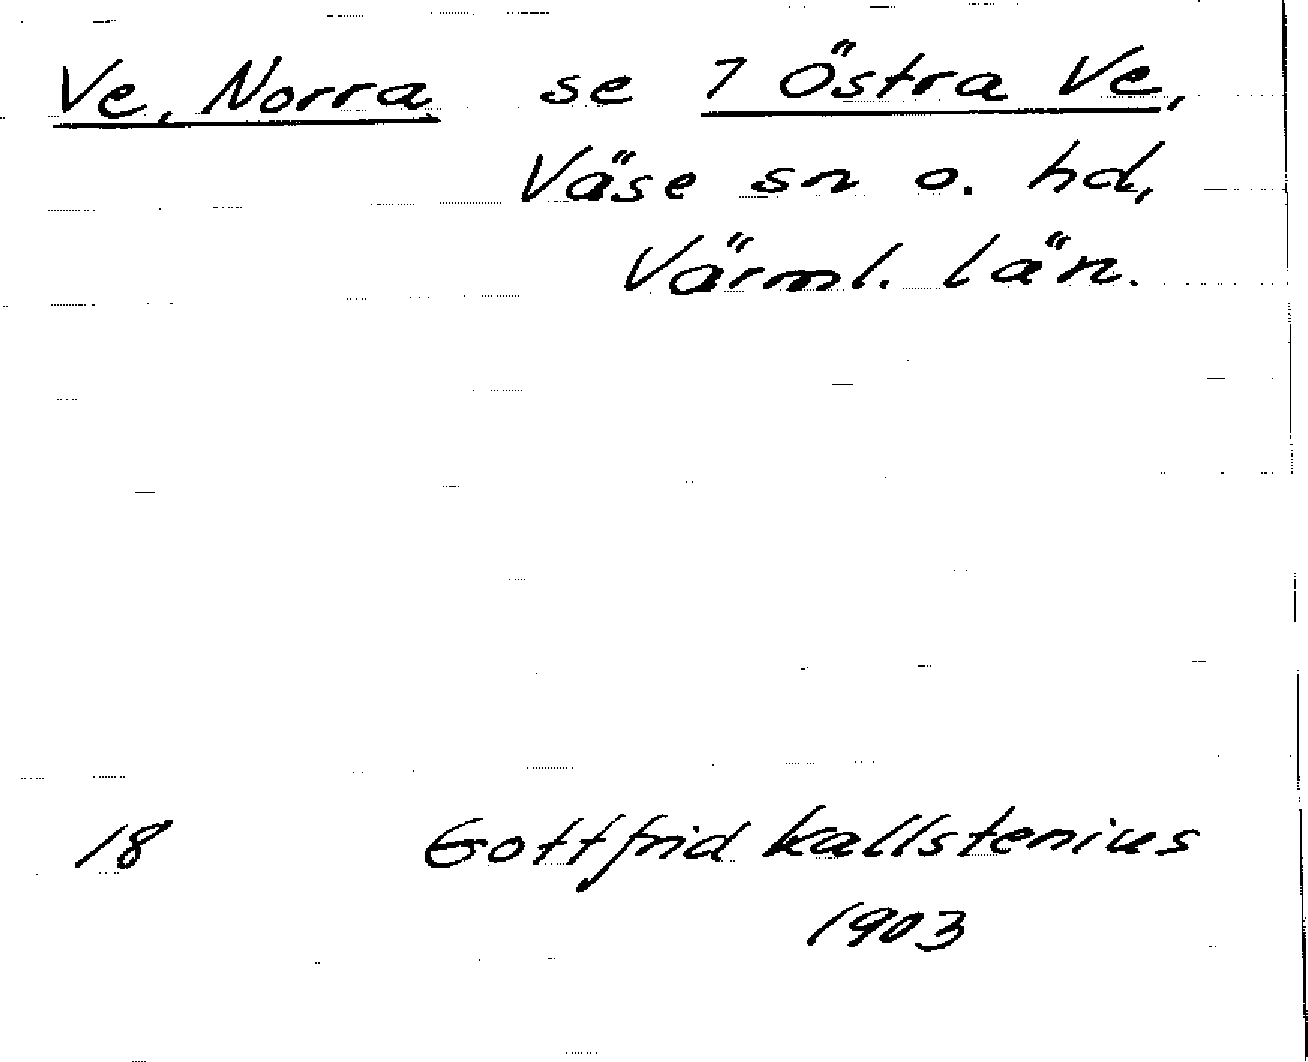 Ve, Norra se 7 Östra Ve,
Väse sn o. hd,
Värml. län.
18 Gottfrid Kallstenius
1903